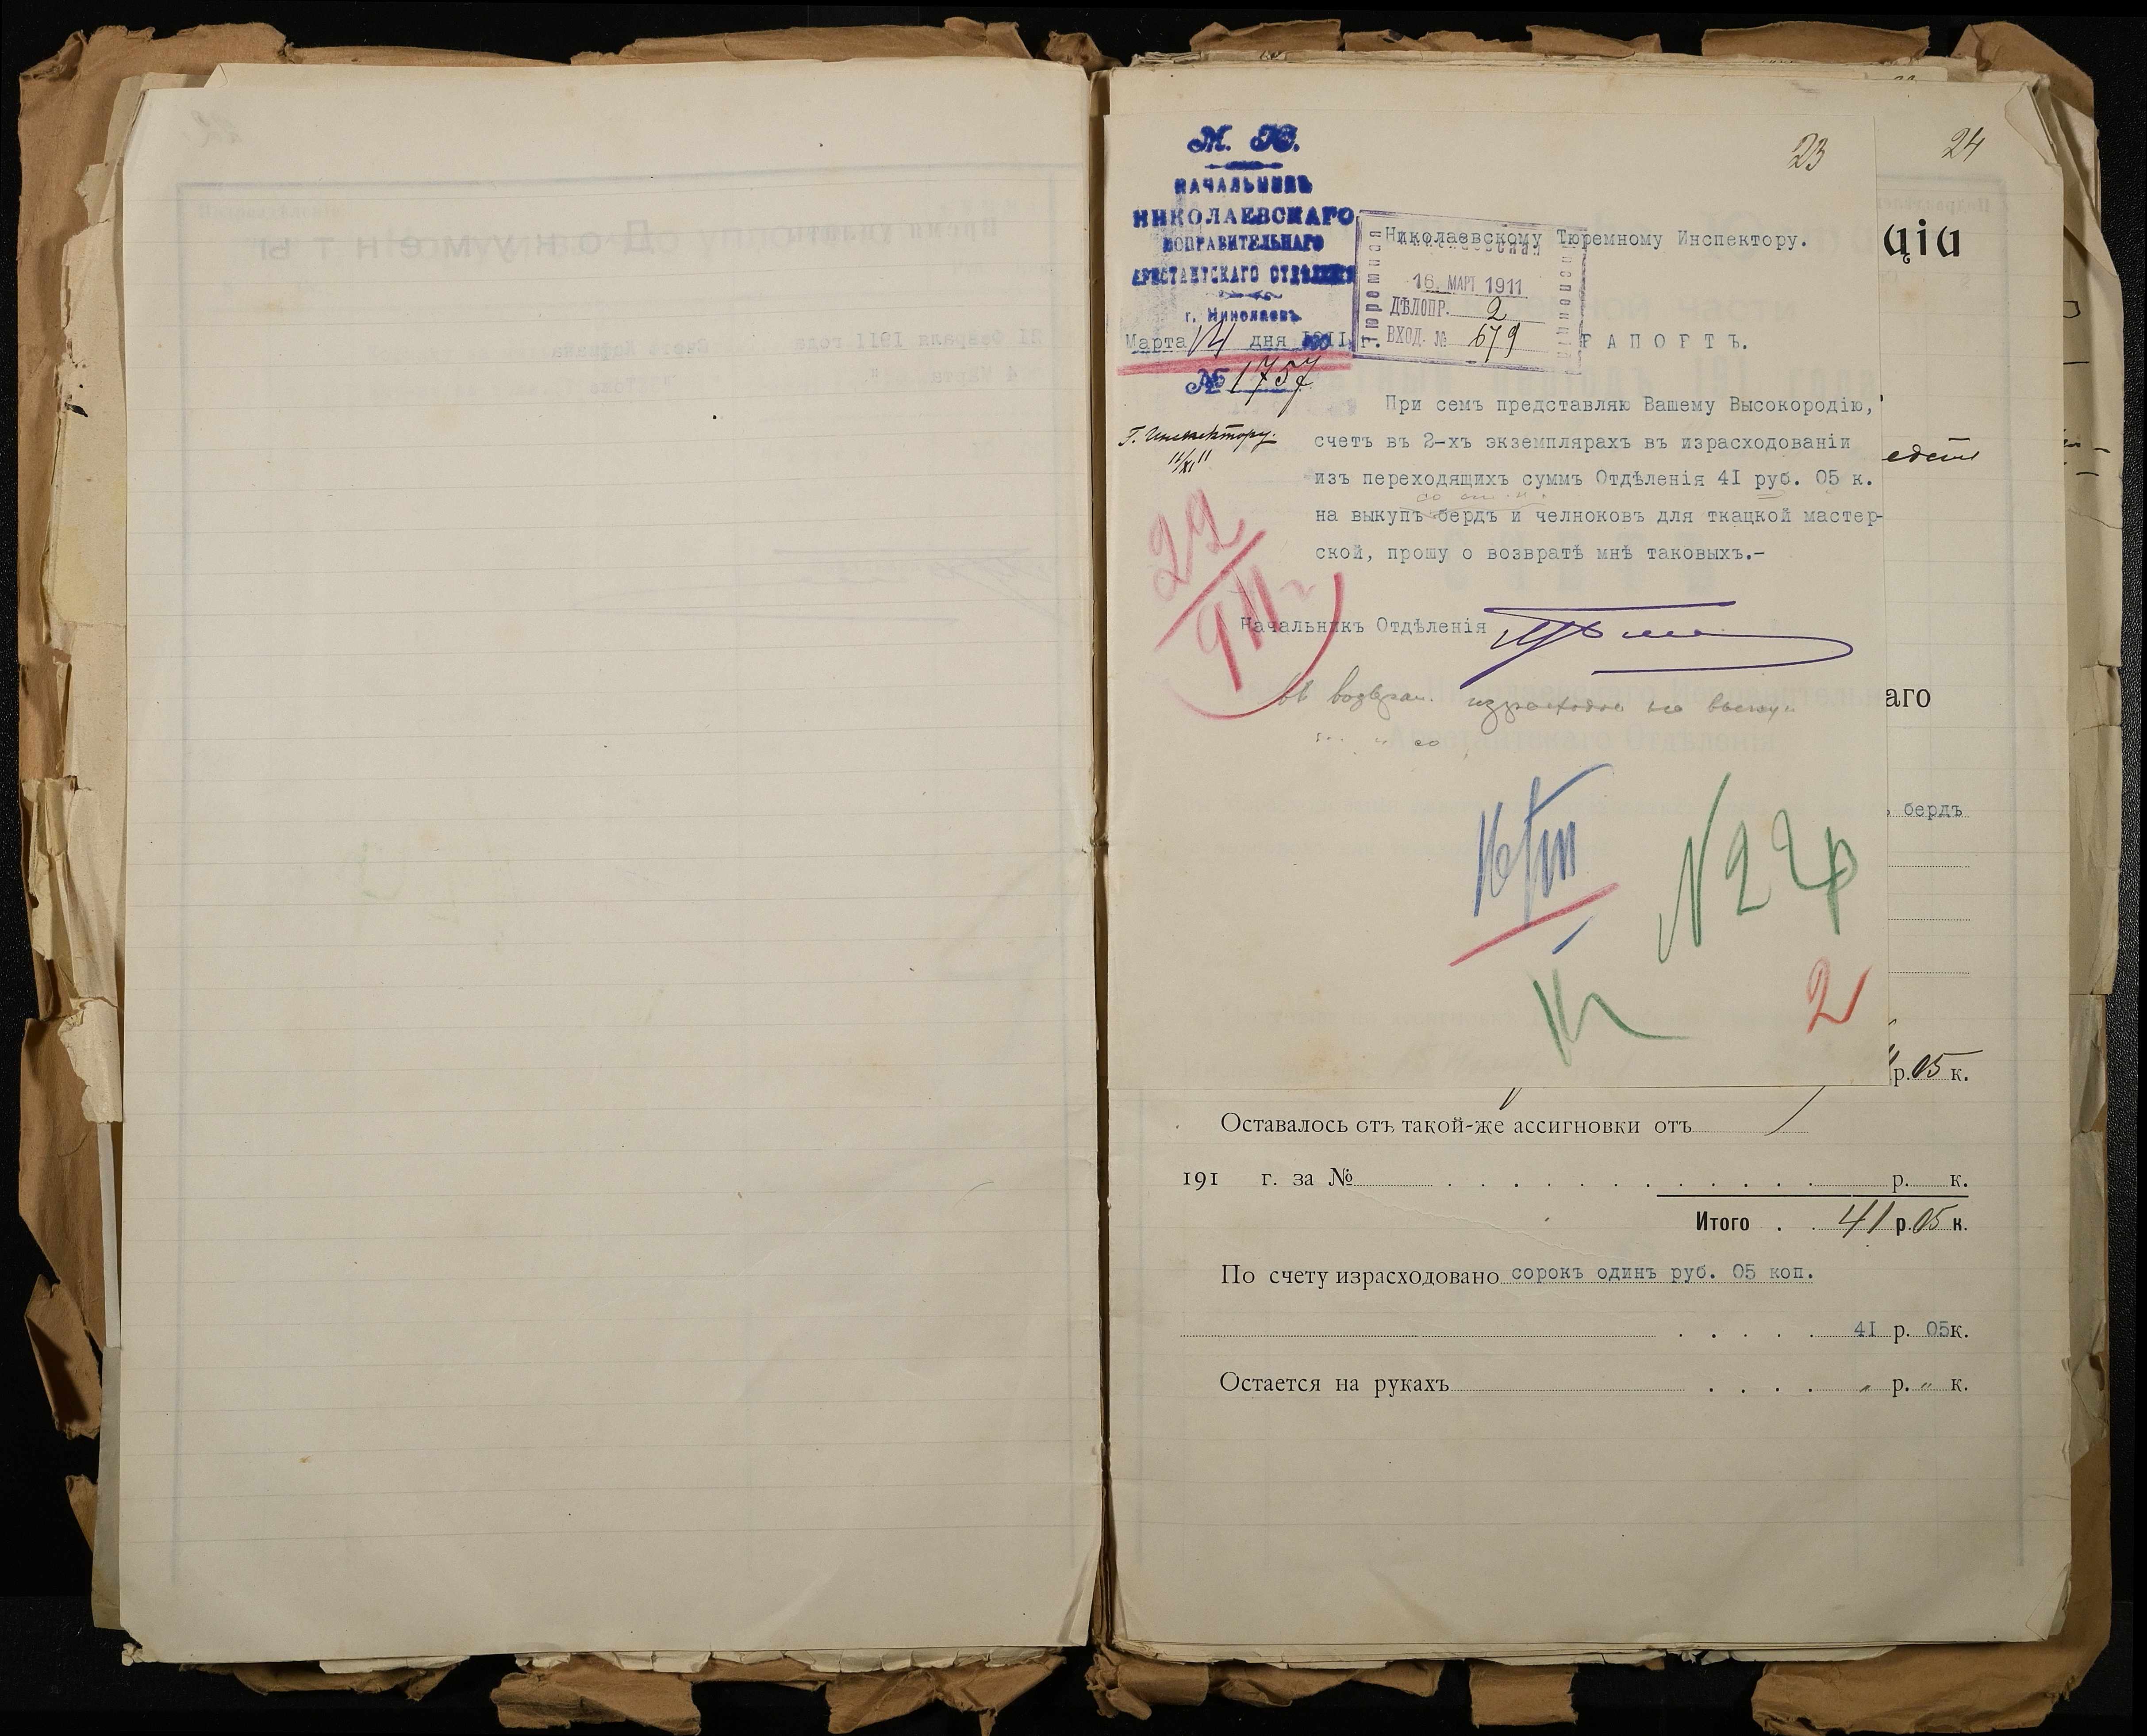 23
24
М. Ю.
НАЧАЛЬНИКЪ
НИКОЛАЕВСКАГО
ИСПРАВИТЕЛЬНАГО
АРЕСТАНТСКАГО ОТДѢЛЕНІЯ
г. Николаевъ
Марта 14 дня 1911 г.
№ 1757
Тюремная
Инспекція
16. МАР 1911
ДѢЛОПР. 2
ВХОД. № 679
Николаевскому Тюремному Инспектору.
РАПОРТЪ.
При семъ представляю Вашему Высокородію,
счетъ въ 2-хъ экземплярахъ въ израсходованіи
изъ переходящихъ суммъ Отдѣленія 41 руб. 05 к.
на выкупъ бердъ и челноковъ для ткацкой мастер-
ской, прошу о возвратѣ мнѣ таковыхъ.-
Г. Инспектору.
22
911 г
Начальникъ Отдѣленія
въ возврат. израсходов на выкуп
16/III
№ 22
2
ціи
аго
бердъ
р. 05 к.
Оставалось отъ такой-же ассигновки отъ
191 г. за № р. к.
Итого . . 41 р. 05 к.
По счету израсходовано сорокъ одинъ руб. 05 коп.
41 р. 05к.
Остается на рукахъ . . . . " р. " к.